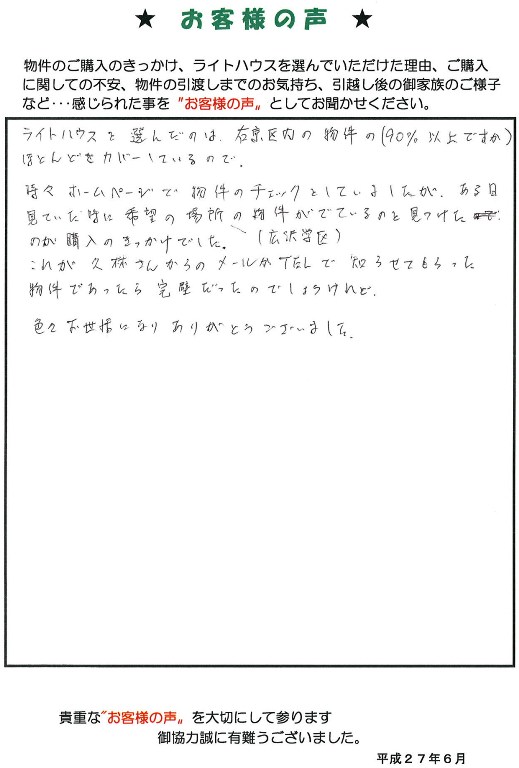 ★ お客様の声 ★
物件のご購入のきっかけ、ライトハウスを選んでいただけた理由、ご購入
に関しての不安、物件の引渡しまでのお気持ち、引越し後の御家族のご様子
など・・・感じられた事を〝お客様の声〟としてお聞かせください。
ライトハウスを選んだのは、右京区内の物件の(90%以上ですか)
ほとんどをカバーしているので。
時々ホームページで物件のチェックをしていましたが、ある日
見ていた時に希望の場所の物件がでているのを見つけた
のが購入のきっかけでした。(広沢学区)
これが久林さんからのメールかTELで知らせてもらった
物件であったら完璧だったのでしょうけれど。
色々お世話になりありがとうございました。
貴重な〝お客様の声〟を大切にして参ります
御協力誠に有難うございました。
平成27年6月